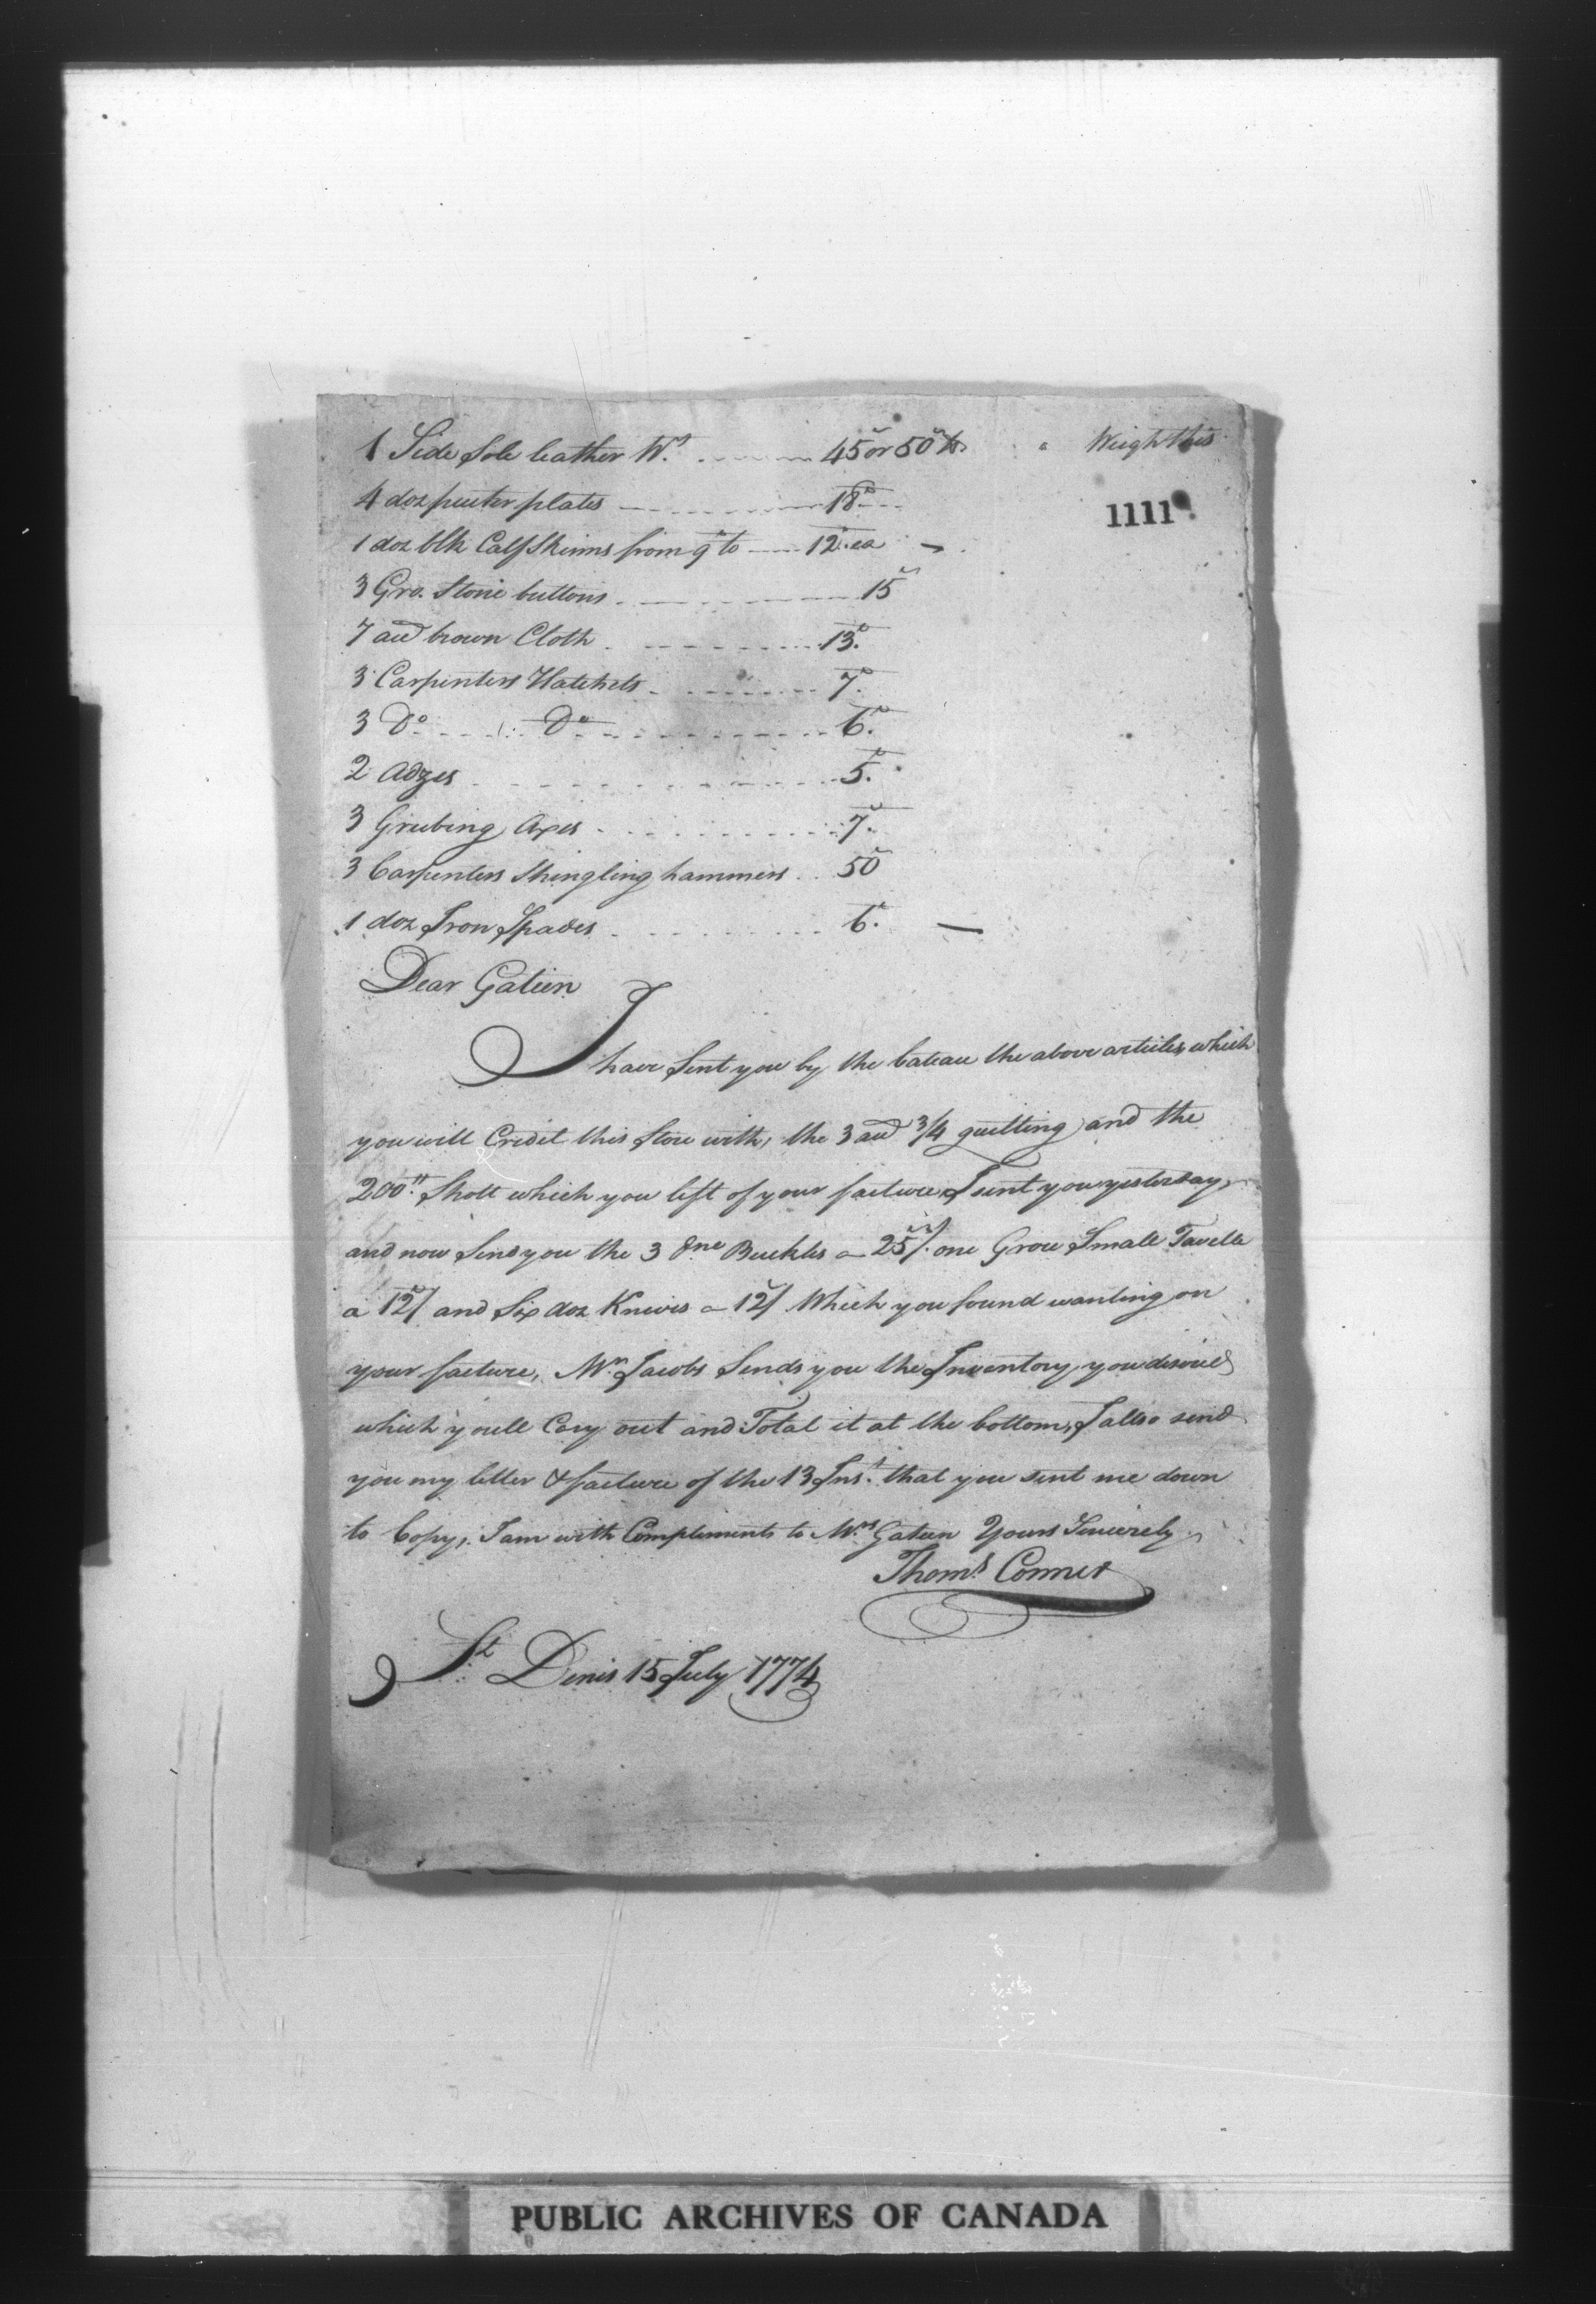 1 Side Sole leather Wt. 45 or 50 lb Weigh this
4 doz pewter plates 18
1111
1 doz blk Calf Skinns from 9 to 12. ea
3 Gro. Stone buttons 15
7 aud brown Cloth 13.
3 Carpenters Hatchets 7.
3 Do. Do 6.
2 Adzes 5.
3 Grubing Axes 7.
3 Carpenters Shingling hammers 50
1 doz Iron Spades 6.
Dear Gatien
I have Sent you by the bateau the above articles which
you will Credit this Store with, the 3 aud 3/4 quilting and the
200 Shott which you left of your facture I sent you yesterday,
and now Send you the 3 Buckles a 25/. one Groce Small Tavella
a 12/ and Six doz Knives a 12/ Which you found wanting on
your facture, Mr. Jacobs Sends you the Inventory you desired
which youll Cary out and Total it at the bottom, I allso send
you my letter & facture of the 13 Inst. that you sent me down
to Copy, I am with Compliments to Mrs Gatien Yours Sincerely
Thoms Conner
St. Denis 15 July 1774
PUBLIC ARCHIVES OF CANADA